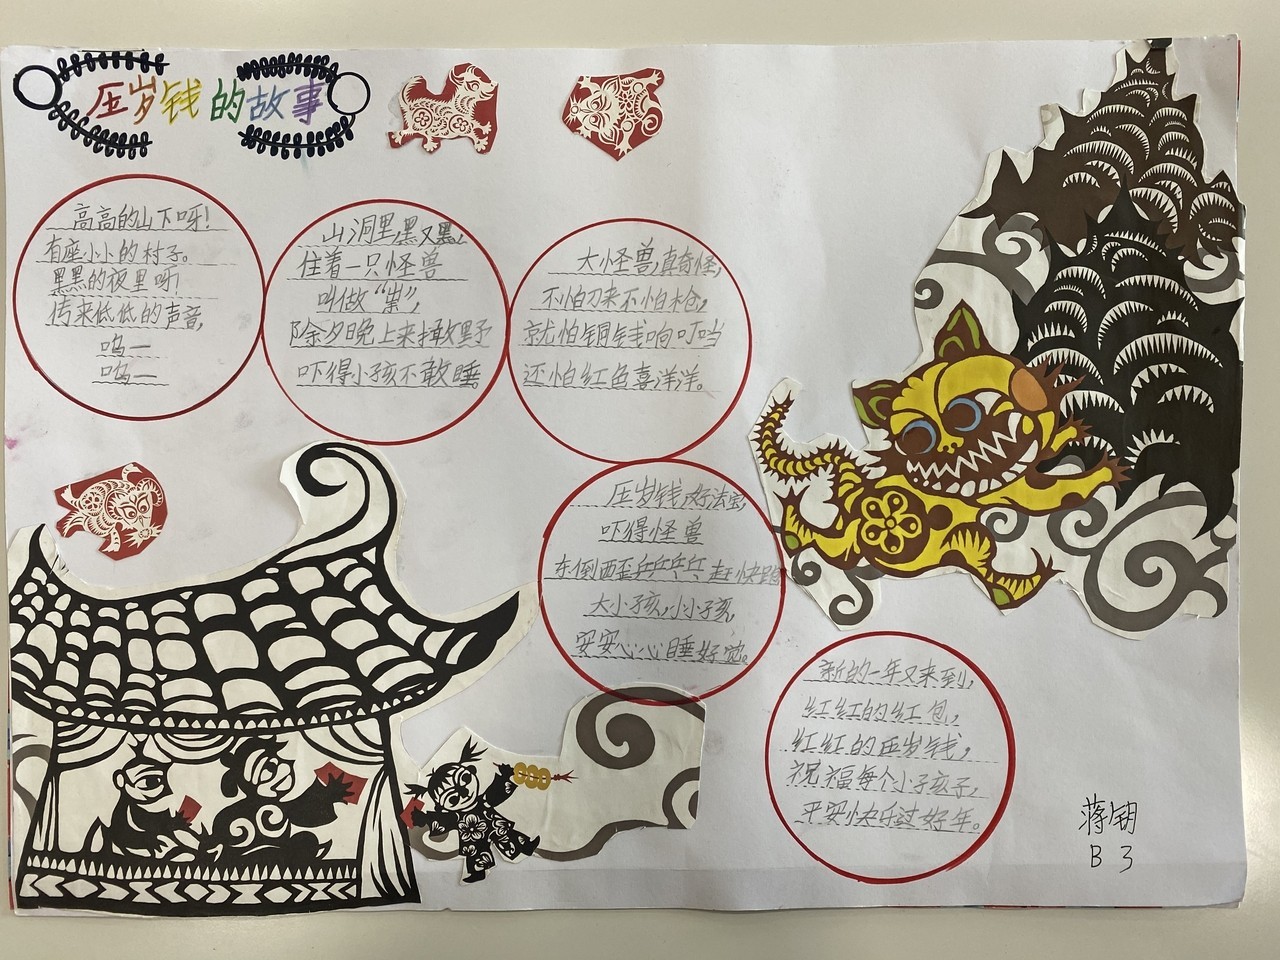 压岁钱的故事
高高的山下呀!
有座小小的村子。
黑黑的夜里呀!
传来低低的声音,
呜一
呜一
山洞里,黑又黑,
住着一只怪兽
叫做“祟”,
除夕晚上来撒野
吓得小孩不敢睡。
大怪兽,真奇怪,
不怕刀来不怕枪,
就怕铜钱响叮当
还怕红色喜洋洋。
压岁钱,好法宝,
吓得怪兽
东倒西歪乒乒乓乓赶快跑
大小孩,小小孩,
安安心心睡好觉。
新的一年又来到,
红红的红包,
红红的压岁钱,
祝福每个小孩子,
平安快乐过好年。
蒋钥
B 3